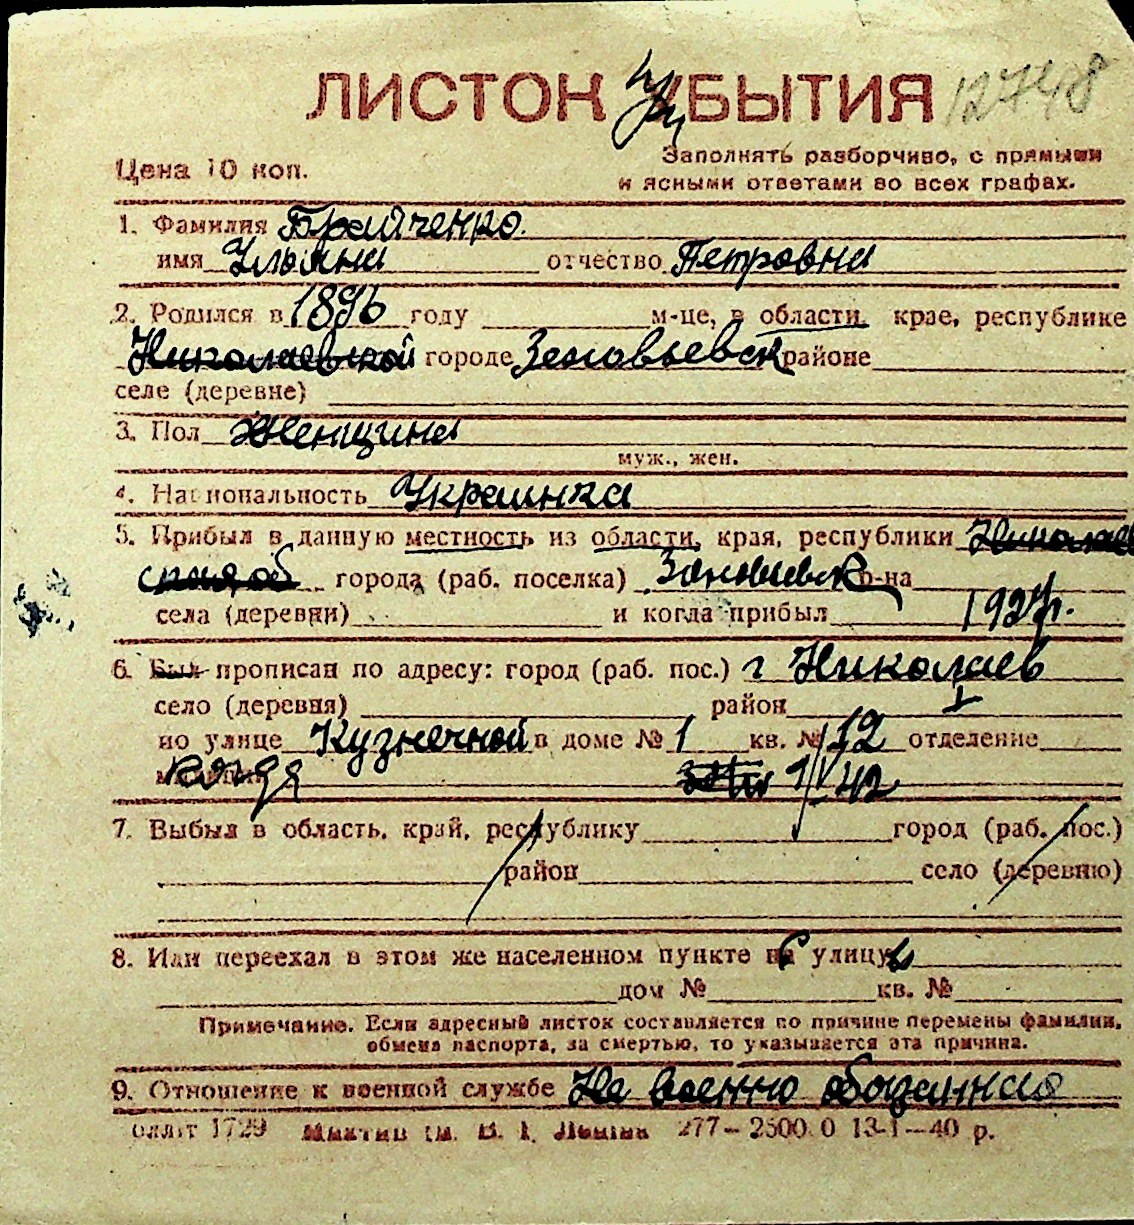 ЛИСТОК УБЫТИЯ 12748
Цена 10 коп.
Заполнять разборчиво, с прямыми
и ясными ответами во всех графах.
1. Фамилия Брайченко.
имя Ульяна отчество Петровна
2. Родился в 1896 году м-це, в области, крае, республике
Николаевской городе Зеновьевск районе
селе (деревне)
3. Пол Женщина
муж., жен.
4. Национальность Украинка
5. Прибыл в данную местность из области, края, республики Николаев
ской об города (раб. поселка) р-на
села (деревни) и когда прибыл 1927г.
6. Был прописан по адресу: город (раб. пос.) г Николаев
село (деревня) район
по улице Кузнечной в доме № 1 кв. № 12 отделение
когда 42
7. Выбыл в область, край, республику город (раб. пос.)
район село (деревню)
8. Или переехал в этом же населенном пункте на улицу
дом № кв. №
Примечание. Если адресный листок составляется по причине перемены фамилии,
обмена паспорта, за смертью, то указывается эта причина.
9. Отношение к военной службе Не военно обязанная
1729 277–2500.0 13-1–40 р.